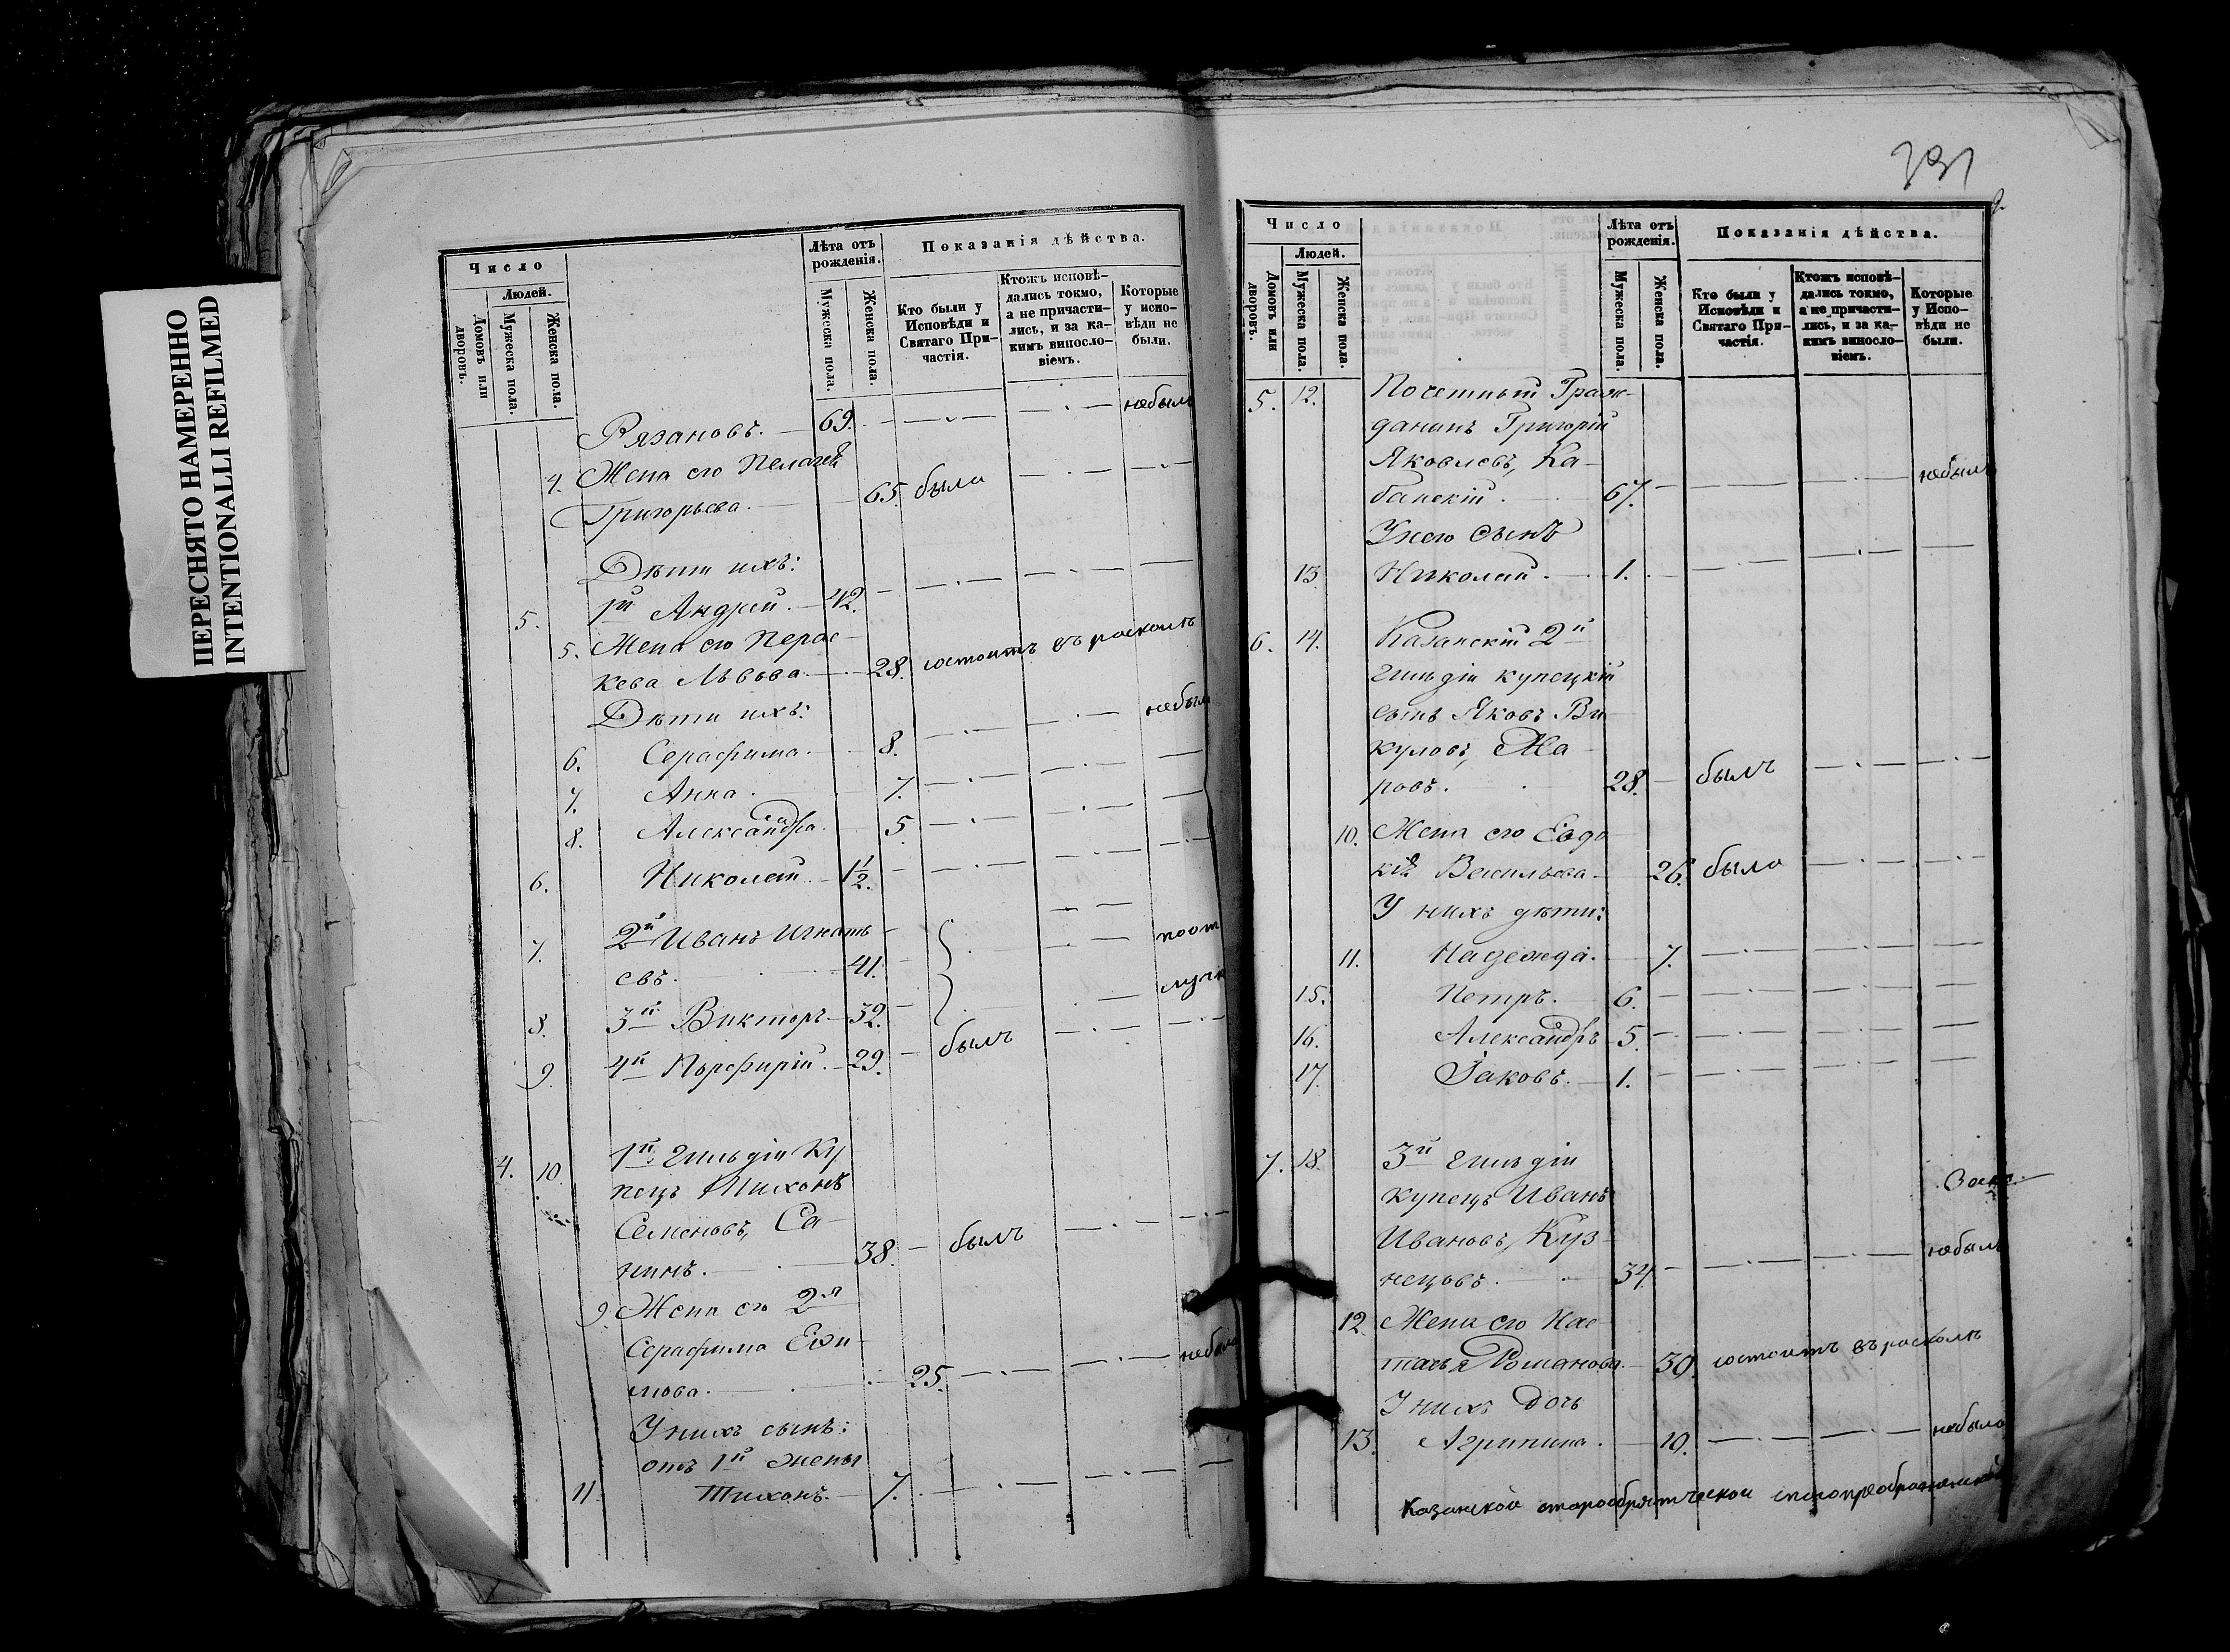 ПЕРЕСНЯТО НАМЕРЕННО
INTENTIONALLI REFILMED
Число
Людей.
Домовъ или дворовъ.
Мужеска пола.
Женска пола.
Лѣта отъ рожденія.
Мужеска пола.
Женска пола.
Показанія дѣйства.
Кто были у Исповѣди и Святаго Причастія.
Ктожъ исповѣдались токмо, а не причастились, и за какимъ винословіемъ.
Которые у исповѣди не были.
Рязановъ. 69. небылъ
4. Жена его Пелагея
Григорьева. 65. была
Дѣти ихъ:
5. 1й Андрей. 42.
5. Жена его Парас-
кева Львова. 28. состоитъ въ расколѣ
Дѣти ихъ:
6. Серафима. 8. небыла
7. Анна. 7.
8. Александра. 5.
6. Николай. 1 1/2.
7. 2й Иванъ Игнать-
евъ. 41. поот
8. 3й Викторъ 32. луч
9. 4й Порфирій. 29. былъ
4. 10. 1й гильдіи Ку
пецъ Тихонъ
Семеновъ, Са-
нинъ. 38. былъ
9. Жена его 2я
Серафима Ефи-
мова. 25. небыла
У нихъ сынъ:
отъ 1й жены
11. Тихонъ. 7.
231
Число
Людей.
Домовъ или дворовъ.
Мужеска пола.
Женска пола.
Лѣта отъ рожденія.
Мужеска пола.
Женска пола.
Показанія дѣйства.
Кто были у Исповѣди и Святаго Причастія.
Ктожъ исповѣдались токмо, а не причастились, и за какимъ винословіемъ.
Которые у Исповѣди не были.
5. 12. Почетный Граж-
данинъ Григорій
Яковлевъ, Ка-
банскій. 67. небылъ
У него сынъ
13 Николай. 1.
6. 14. Казанскій 2й
гильдіи купецкій
сынъ Яковъ Ви-
куловъ, Ма-
ровъ. 28. былъ
10. Жена его Евдо
кія Васильева 26. была
У нихъ дѣти:
11. Надежда. 7.
15. Петръ. 6.
16. Александръ 5.
17. Іаковъ. 1.
7. 18. 3й гильдіи
купецъ Иванъ
Ивановъ, Куз-
нецовъ. 34. небылъ
12. Жена его Нас
тасья Романова. 30. состоитъ въ расколѣ
У нихъ дочь
13. Агрипина. 10. небыла
Казанской старообрятческой спасопреображенской